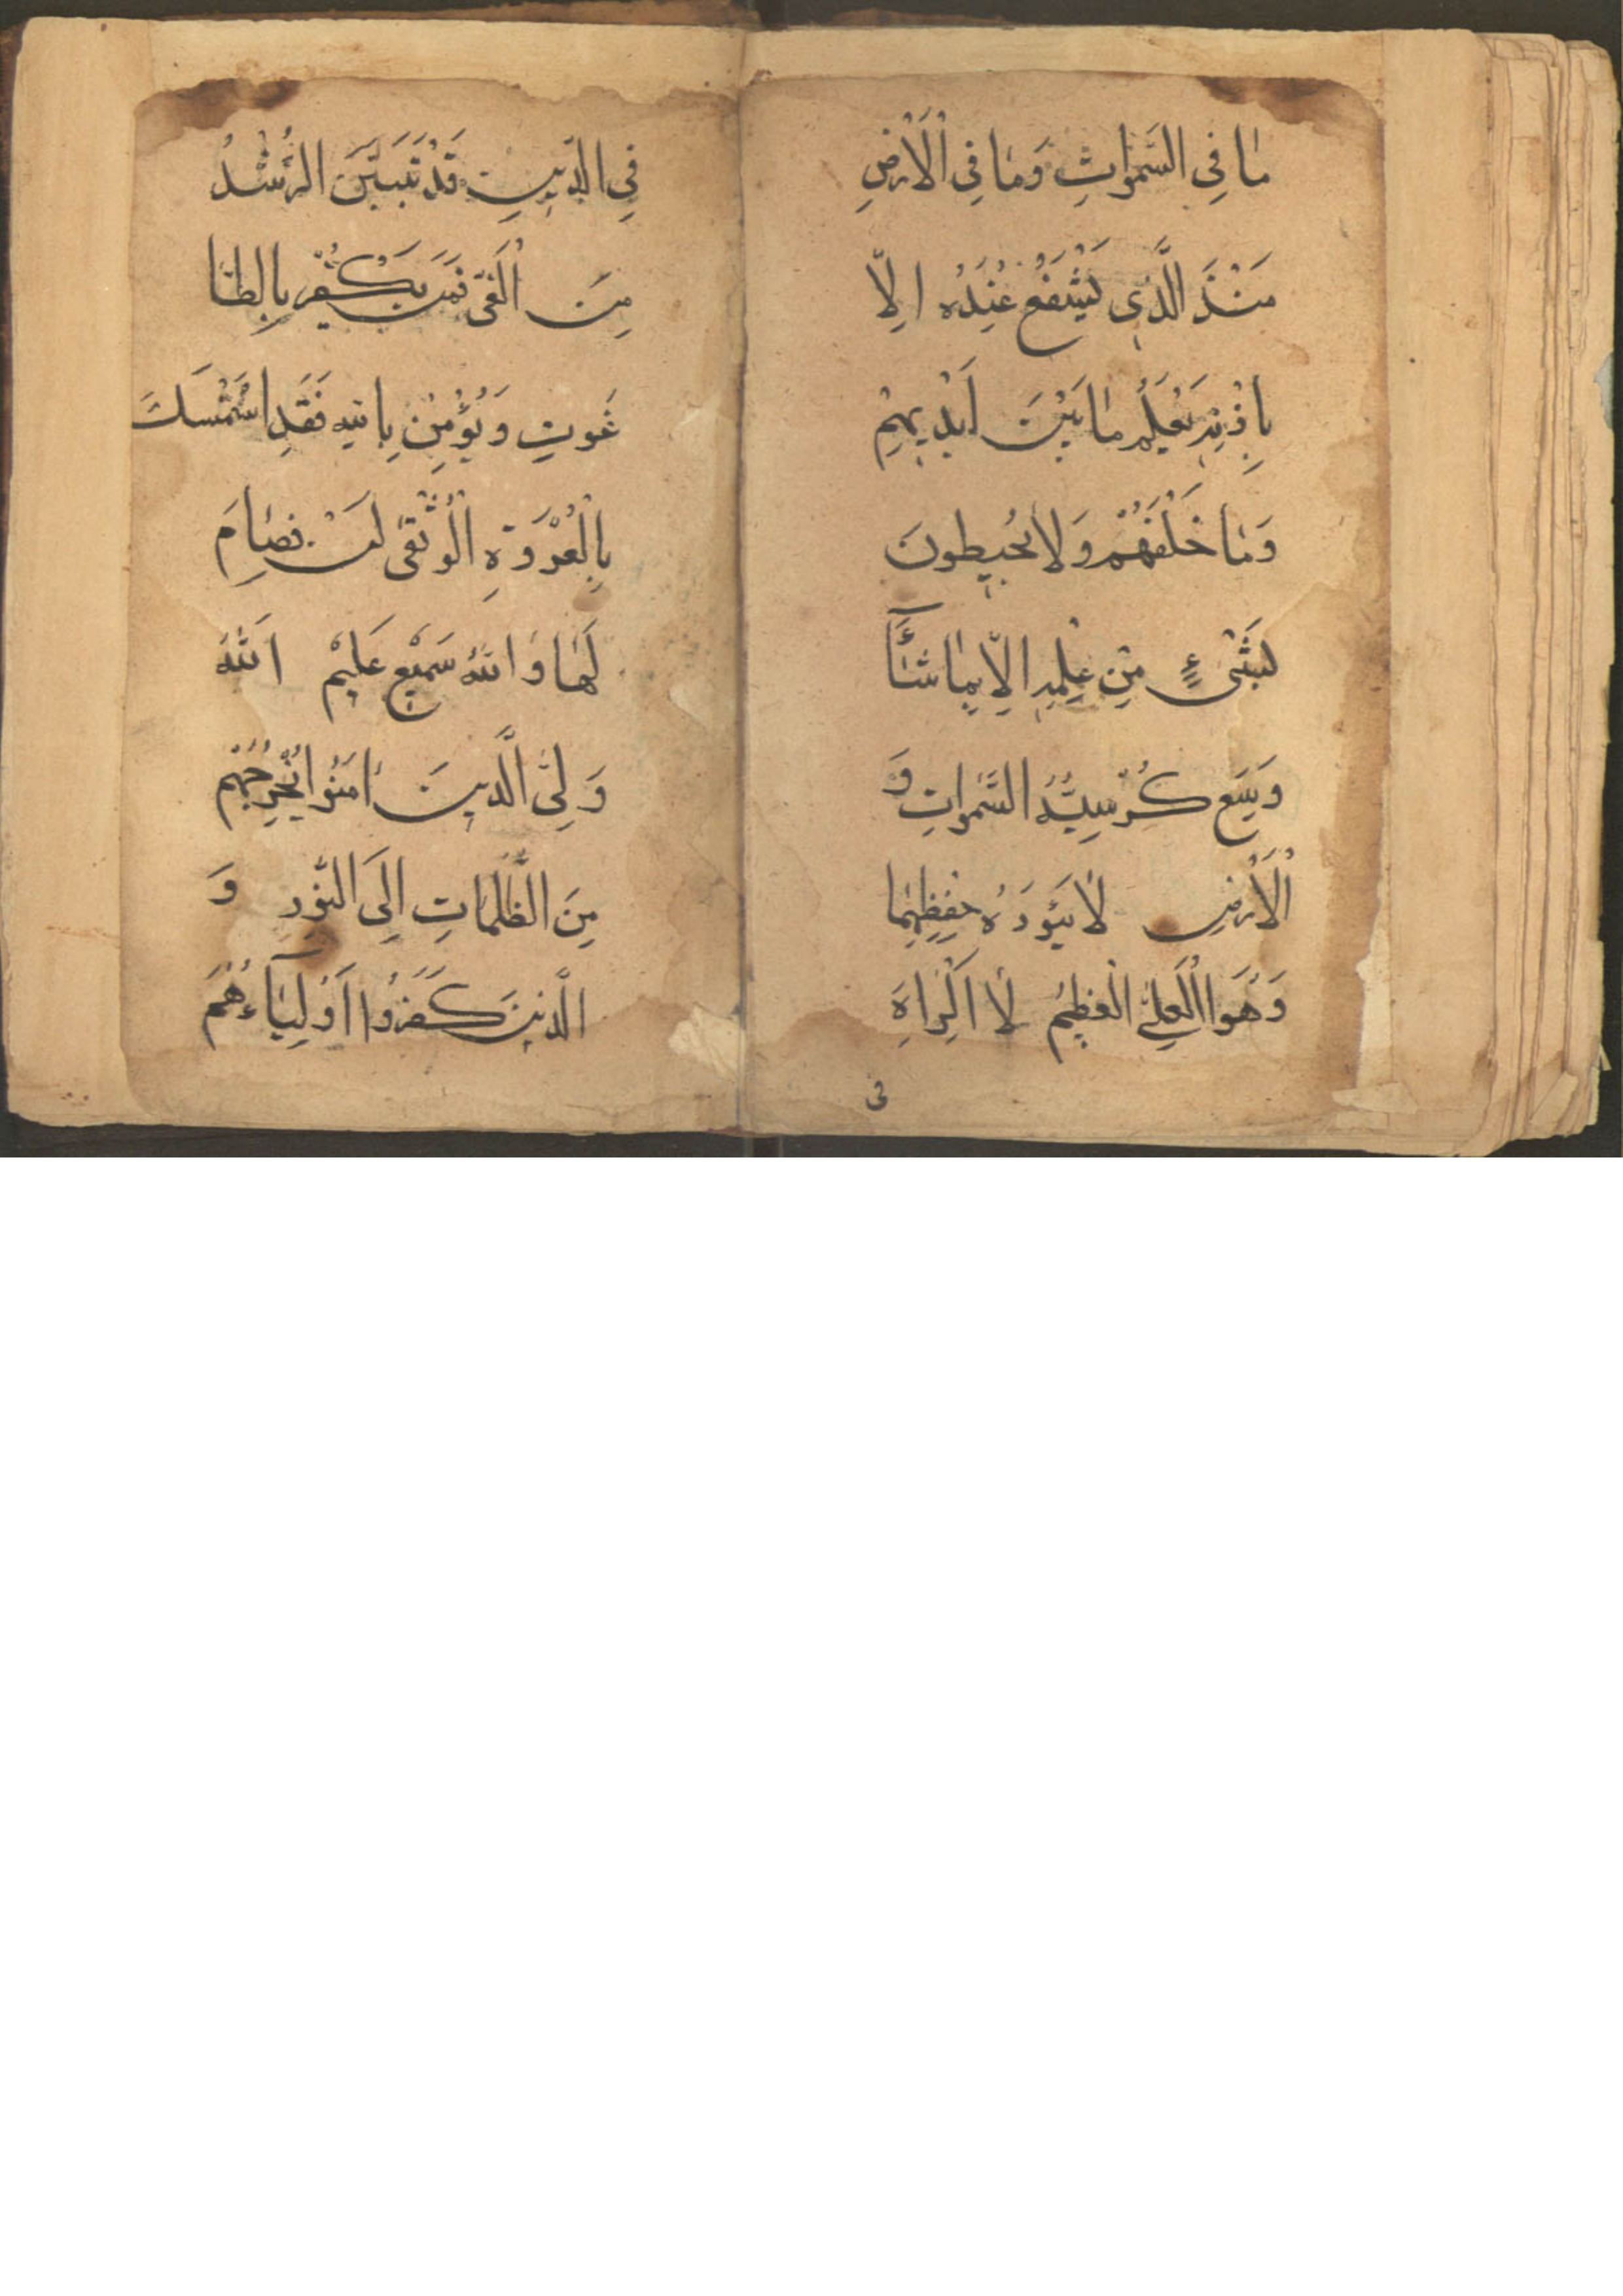 مَا فِي السَّمٰوَاتِ وَمَا فِي الْاَرْضِ
مَنْذَ الَّذِى يَشْفَعُ عِنْدَهُ اِلَّا
بِاِذْنِهِ يَعْلَمُ مَا بَيْنَ اَيْدِيهِمْ
وَمَا خَلْفَهُمْ وَلَا يُحِيطُونَ
لبشَىْءٍ مِنْ عِلْمِهِ اِلَّا بِمَا شَآءَ
وَسِعَ كُرْسِيُّهُ السَّمٰوَاتِ وَ
الْاَرْضِ لَا يَؤُدَهُ حِفِظِهِمَا
وَهُوَا الْعَلِىُّ الْعَظِيم لَا اَكْرَاهَ
فى
فِي الدِّينِ قَدْ تَبَيَّنَ الرُّشْدُ
مِنَ الْغَىِّ فَمَنْ يَكْفُرْ بِالطَّا
غَوتِ وَيُؤْمِنْ بِاللهِ فَقَدِ اسْتَمْسَكَ
بِالْعُرْوَةِ الْوُثْقٰى لَنْ فِصَامَ
لَهَا وَاللهُ سَمِيْعٌ عَلِيْمٌ اَللهُ
وَلِىُّ الَّذِينَ اٰمَنُوا يُخْرِجُهُم
مِنَ الظُّلُمَاتِ اِلَى النُّورِ وَ
الَّذِينَ كَفَرُوا اَوْلِيَآءُهُمَ